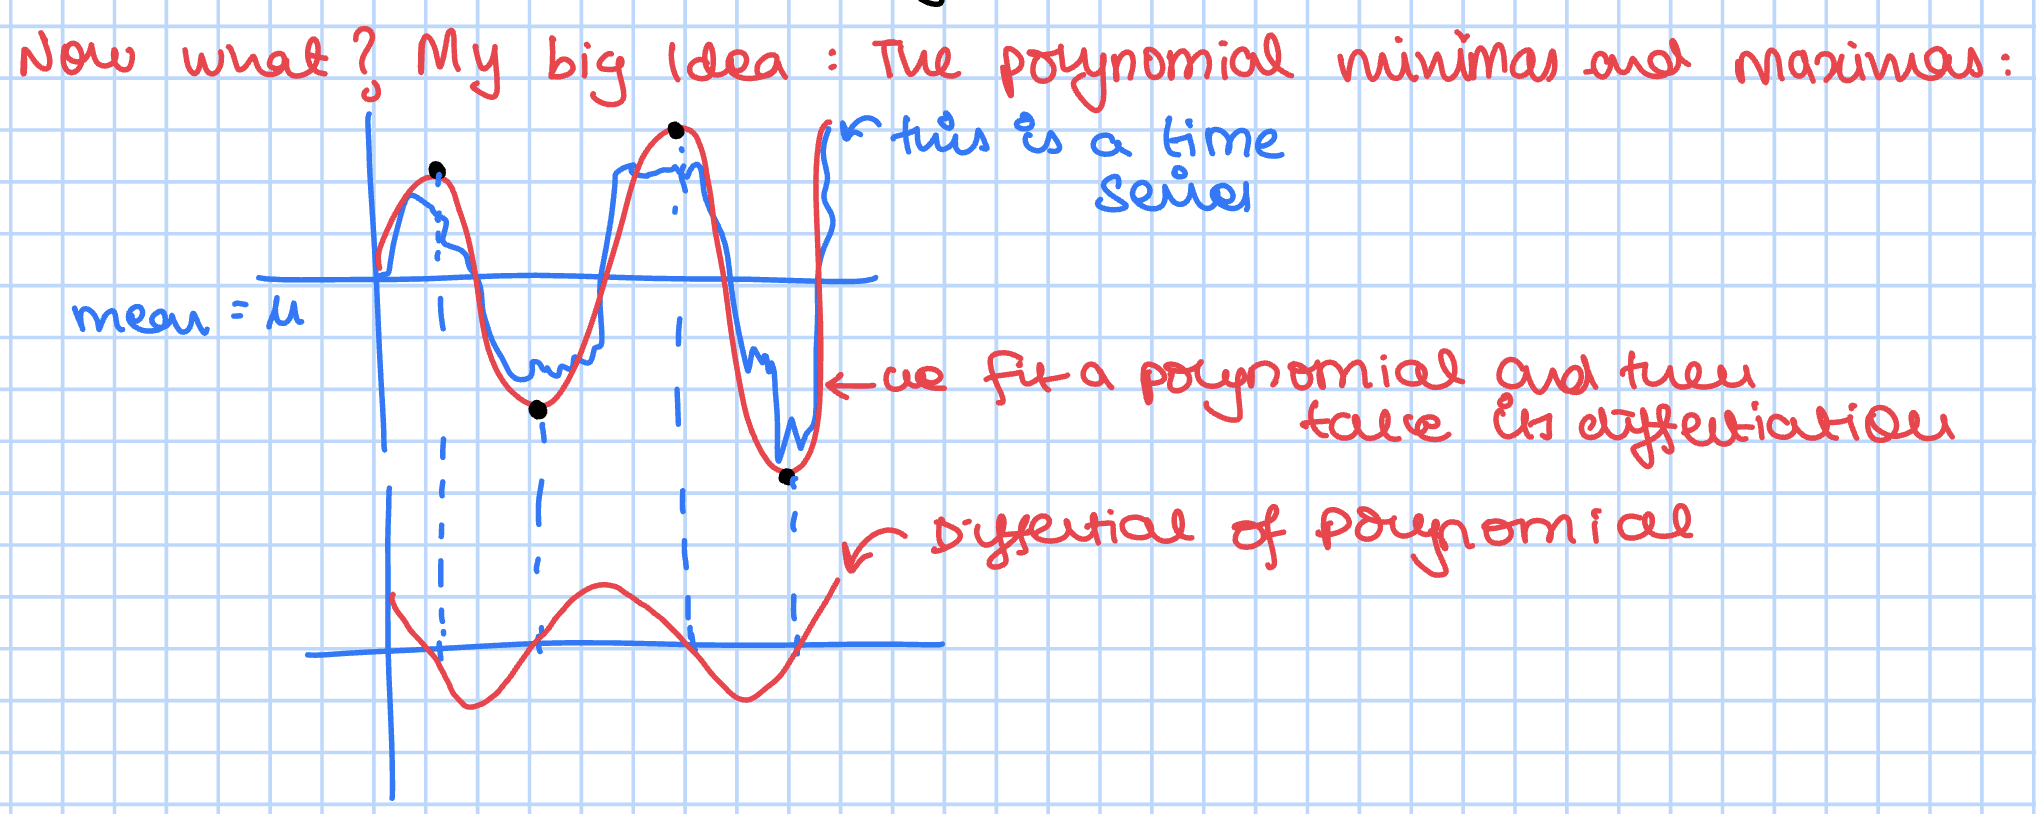 Now what? My big Idea : The polynomial minimas and maximas :
this is a time
series
mean = μ
we fit a polynomial and then
take its differentiation
Differential of polynomial